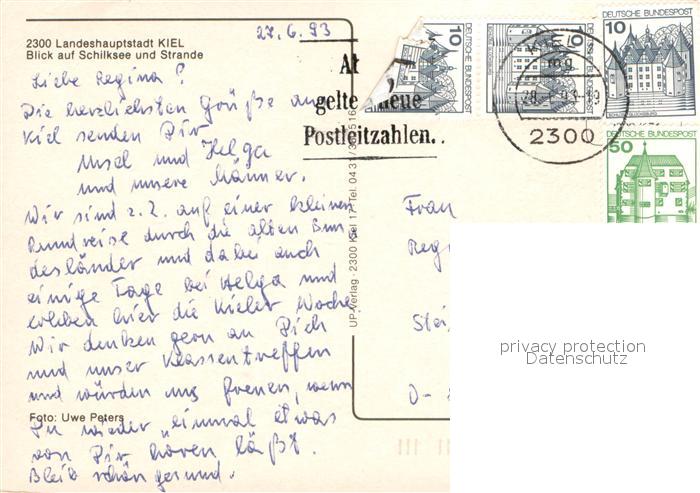 27.6.93
2300 Landeshauptstadt KIEL
Blick auf Schilksee und Strande
Liebe Regina!
Die herzlichsten Grüße aus
Kiel senden Dir
Ursel und Helga
und unsere Männer.
Wir sind z.Z. auf einer kleinen
Rundreise durch die alten Bun-
desländer und dabei auch
einige Tage bei Helga und
erleben hier die Kieler Woche.
Wir denken gern an Dich
und unser Klassentreffen
und würden uns freuen, wenn
Du wieder einmal etwas
von Dir hören läßt.
Bleib schön gesund.
Foto: Uwe Peters
UP-Verlag · 2300 Kiel 17 · Tel. 0431
gelten neue
Postleitzahlen.
10
10
DEUTSCHE BUNDESPOST
10
DEUTSCHE BUNDESPOST
50
2300
Frau
Regi
D-
privacy protection
Datenschutz